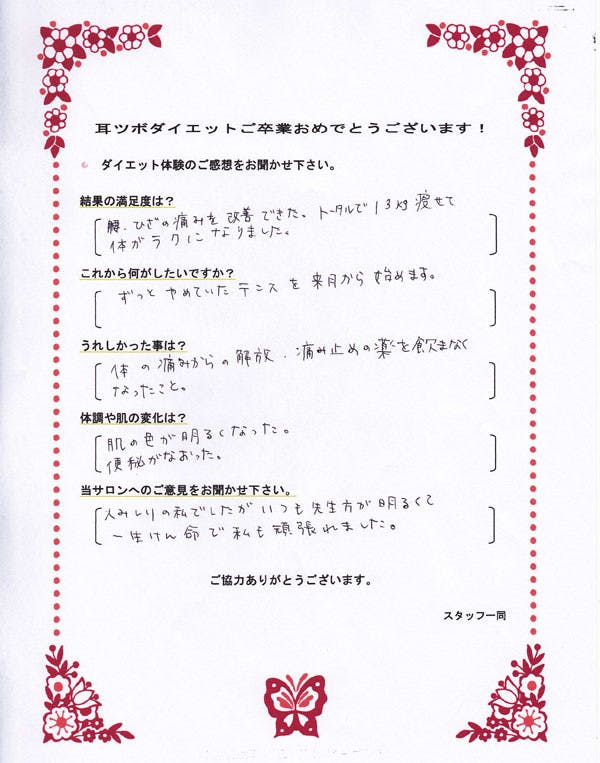 耳ツボダイエットご卒業おめでとうございます！
ダイエット体験のご感想をお聞かせ下さい。
結果の満足度は？
腰、ひざの痛みを改善できた。トータルで13kg痩せて
体がラクになりました。
これから何がしたいですか？
ずっとやめていたテニスを来月から始めます。
うれしかった事は？
体の痛みからの解放、痛み止めの薬を飲まなく
なったこと。
体調や肌の変化は？
肌の色が明るくなった。
便秘がなおった。
当サロンへのご意見をお聞かせ下さい。
人みしりの私でしたがいつも先生方が明るくて
一生けん命で私も頑張れました。
ご協力ありがとうございます。
スタッフ一同